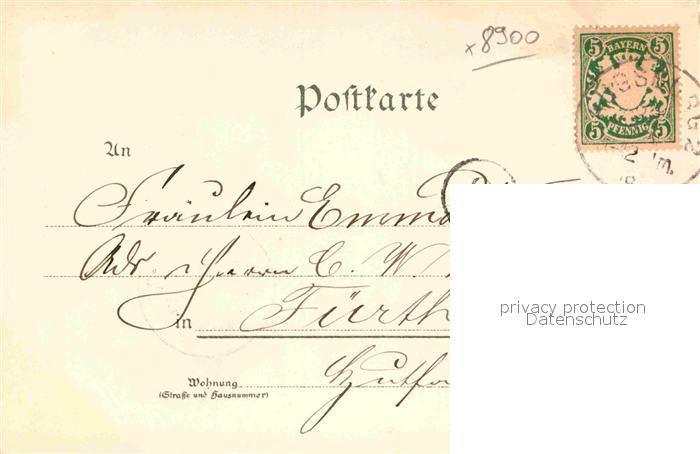 x 8900
5 BAYERN 5
5 PFENNIG 5
Postkarte
An
Fräulein Emma
Adr. Herrn C. W.
in Fürth
Wohnung
(Straße und Hausnummer)
privacy protection
Datenschutz